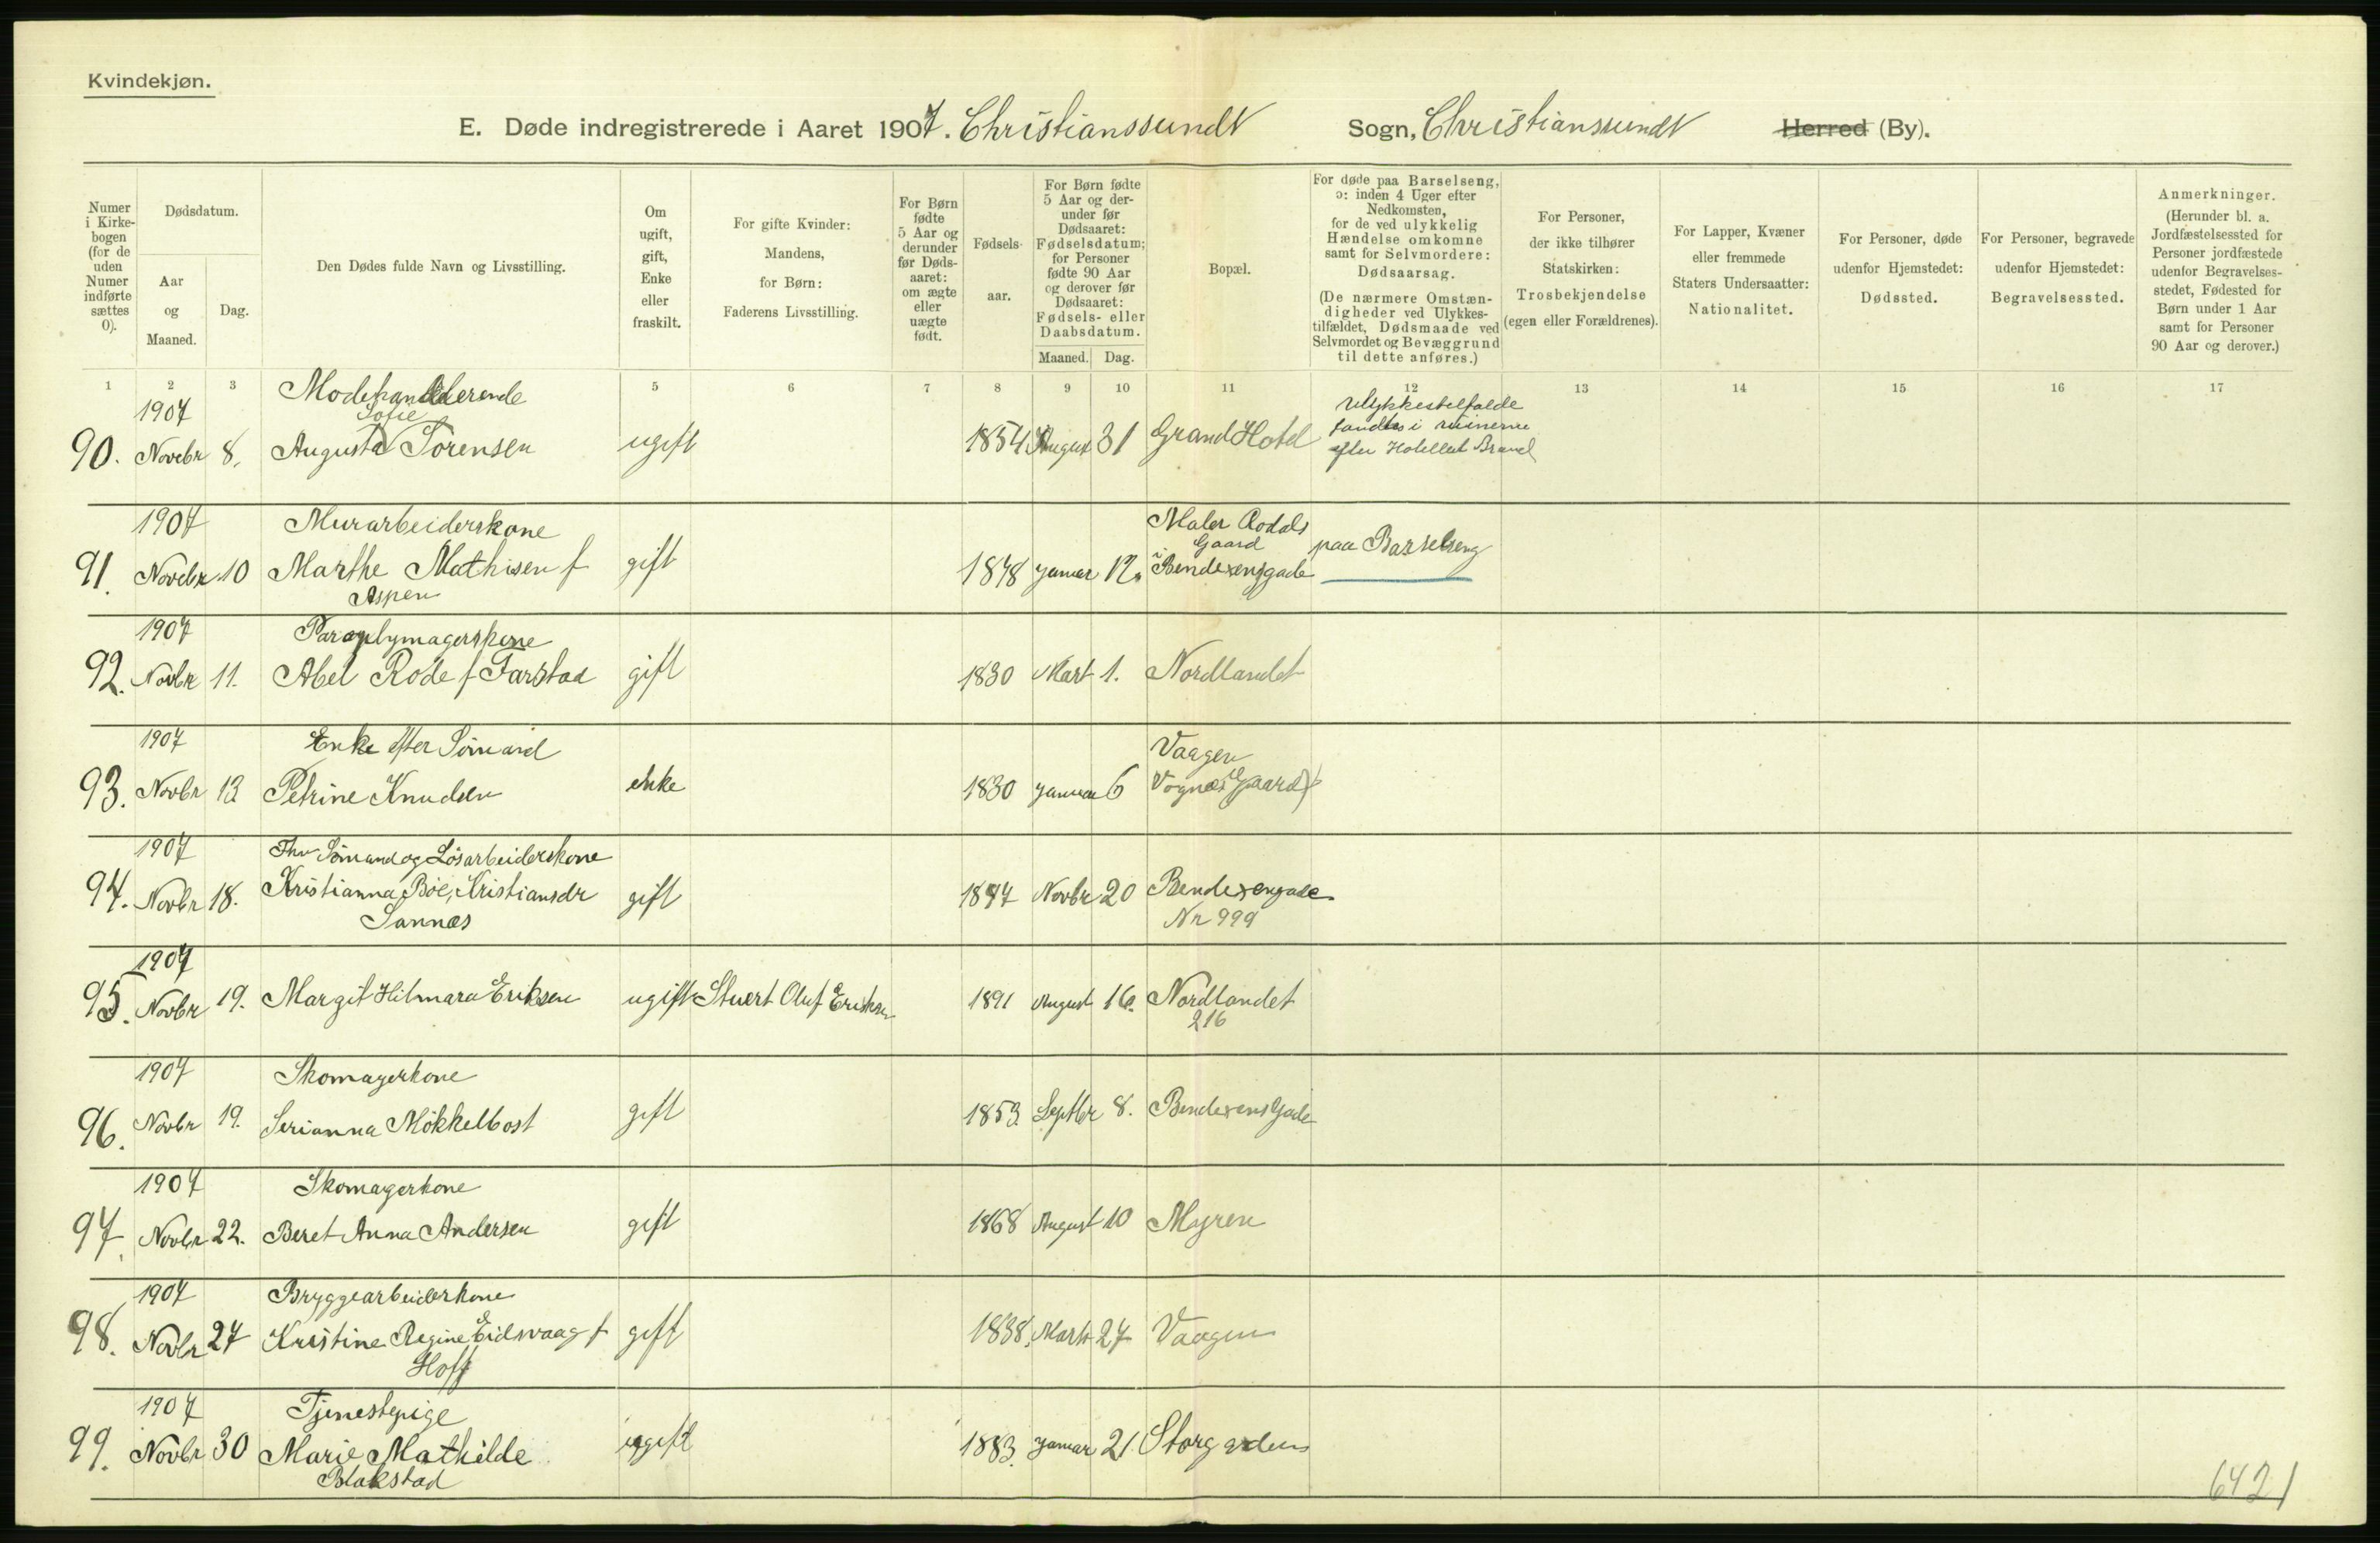 Kvindekjøn.
E. Døde indregistrerede i Aaret 1907. Christianssund Sogn, Christianssund Herred (By).
Numer i Kirkebogen (for de uden Numer indførte sættes 0).
Dødsdatum.
Aar og Maaned.
Dag.
Den Dødes fulde Navn og Livsstilling.
Om ugift, gift, Enke eller fraskilt.
For gifte Kvinder: Mandens, for Børn: Faderens Livsstilling.
For Børn fødte 5 Aar og derunder før Dødsaaret: om ægte eller uægte født.
Fødselsaar.
For Børn fødte 5 Aar og derunder før Dødsaaret: Fødselsdatum; for Personer fødte 90 Aar og derover før Dødsaaret: Fødsels- eller Daabsdatum.
Maaned. Dag.
Bopæl.
For døde paa Barselseng, ɔ: inden 4 Uger efter Nedkomsten, for de ved ulykkelig Hændelse omkomne samt for Selvmordere: Dødsaarsag.
(De nærmere Omstændigheder ved Ulykkestilfældet, Dødsmaade ved Selvmordet og Bevæggrund til dette anføres.)
For Personer, der ikke tilhører Statskirken: Trosbekjendelse (egen eller Forældrenes).
For Lapper, Kvæner eller fremmede Staters Undersaatter: Nationalitet.
For Personer, døde udenfor Hjemstedet: Dødssted.
For Personer, begravede udenfor Hjemstedet: Begravelsessted.
Anmerkninger.
(Herunder bl. a. Jordfæstelsessted for Personer jordfæstede udenfor Begravelsesstedet, Fødested for Børn under 1 Aar samt for Personer 90 Aar og derover.)
1 2 3 5 6 7 8 9 10 11 12 13 14 15 16 17
1907 Modehandlerende Ulykkestilfælde
Sofie fandtes i ruinerne
90. Novebr 8. Augusta Sörensen ugift 1854 August 31 Grand Hotel efter Hotellet Brand
1907 Murarbeiderskone Maler Rodals
Gaard paa Barselseng
91. Novebr 10 Marthe Mathisen f gift 1878 Januar 12. i Bendixensgade
Aspen
1907 Paraplymagerskone
92. Novbr 11. Abel Rode f Farstad gift 1830 Mart 1. Nordlandet
1907 Enke efter Sömand Vaagen
93. Novbr 13 Petrine Knudsen enke 1830 Januar 6 Vognæs Gaard
1907 Fhv Sömand og Lösarbeiderskone
94. Novbr 18. Kristianna Böe, Kristiansdr gift 1847 Novbr 20 Bendixengade
Sannæs Nr 999
1907
95. Novbr 19. Margit Hilmara Eriksen ugift Stuert Oluf Eriksen 1891 August 16. Nordlandet
216
1907 Skomagerkone
96. Novbr 19. Serianna Mökkelbost gift 1853 Septbr 8. Bendixens Gade
1907 Skomagerkone
97. Novbr 22. Beret Anna Andersen gift 1868 August 10 Myren
1907 Bryggearbeiderkone
98. Novbr 27 Kristine Regine Eidsvaag f gift 1838. Marts 27 Vaagen
Hoff
1907 Tjenestepige
99. Novbr 30 Marie Mathilde ugift 1883. Januar 21. Storgaden
Blakstad
6421